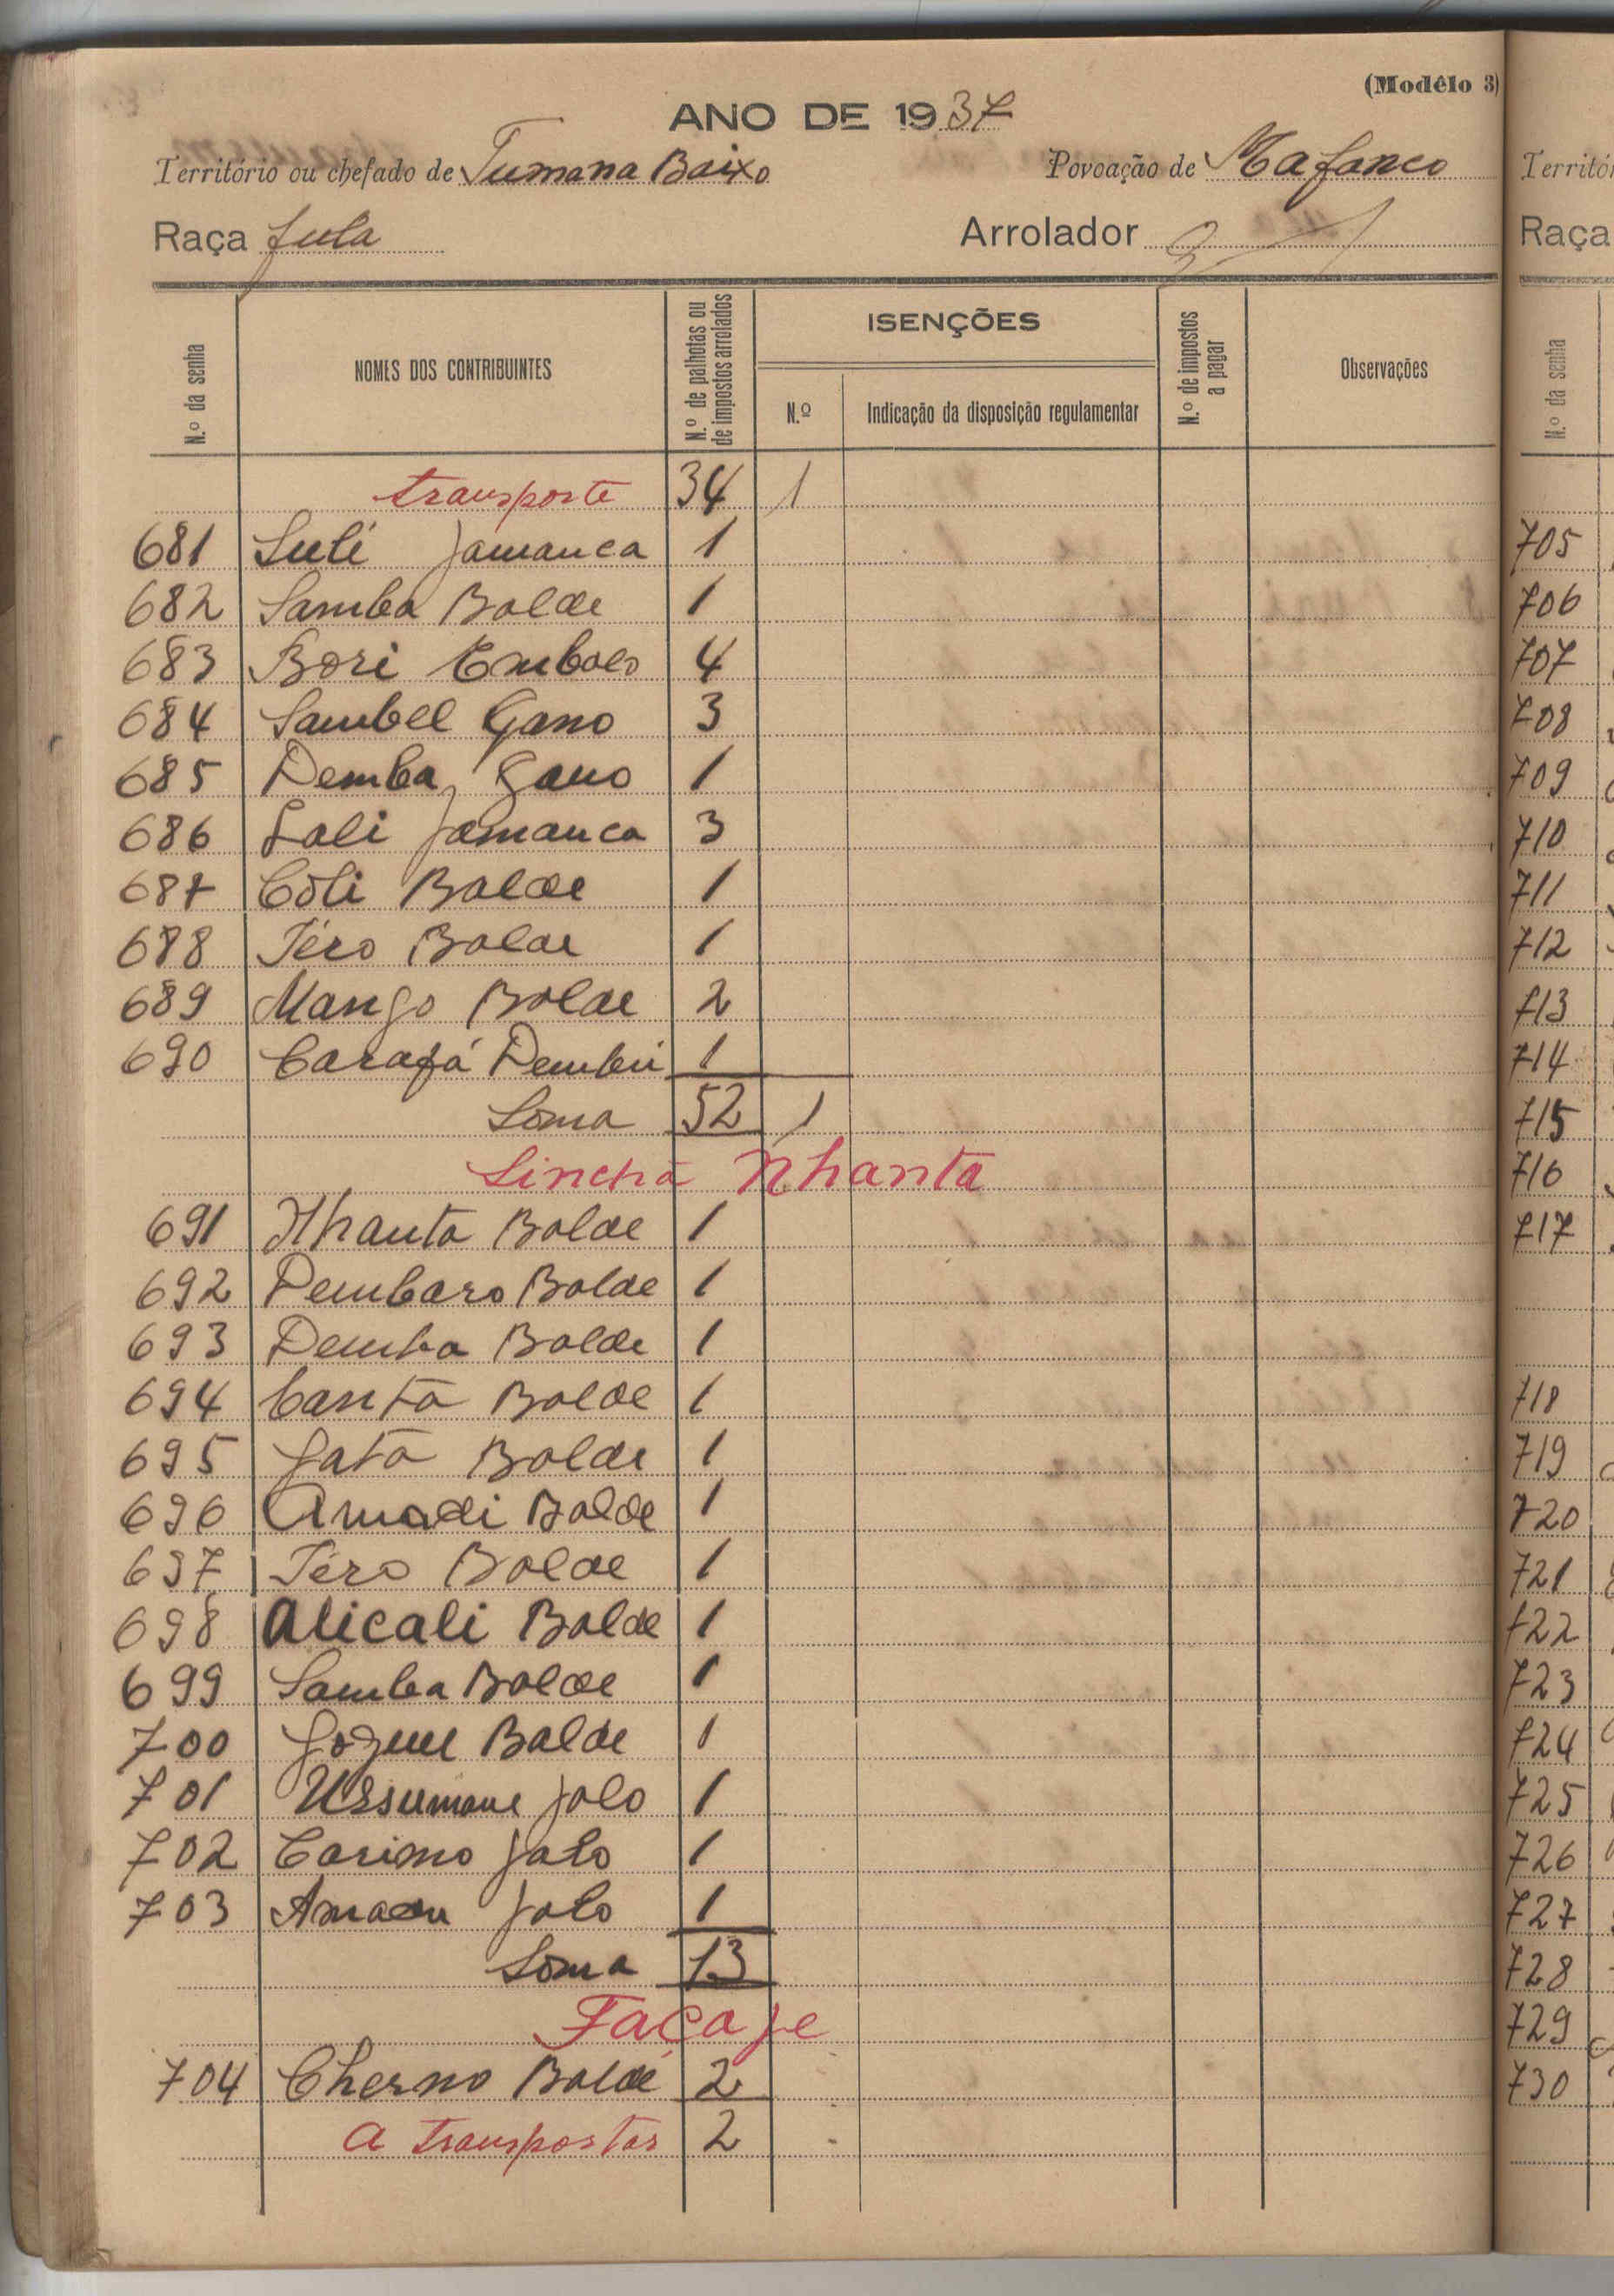 (Modêlo 3)
ANO DE 1937
Território ou chefado de Tumana Baixo Povoação de Mafanco
Raça fula Arrolador
N.º da senha NOMES DOS CONTRIBUINTES N.º de palhotas ou de impostos arrolados ISENÇÕES N.º Indicação da disposição regulamentar N.º de impostos a pagar Observações
transporte 34 1
681 Sulí Jamanca 1
682 Samba Balde 1
683 Bori Embalo 4
684 Sambel Gano 3
685 Demba Gano 1
686 Lali Jamanca 3
687 Côli Balde 1
688 Téro Balde 1
689 Mango Balde 2
690 Carafá Dembú 1
Soma 52 1
Sinchã Nhanta
691 Nhanta Balde 1
692 Dembaro Balde 1
693 Demba Balde 1
694 Canta Balde 1
695 Jata Balde 1
696 Amadi Balde 1
697 Téro Balde 1
698 Alicali Balde 1
699 Samba Balde 1
700 Balde 1
701 Ussumane Jalo 1
702 Carimo Jalo 1
703 Amadu Jalo 1
Soma 13
Façaje
704 Cherno Baldé 2
A transportar 2
Territó
Raça
N.º da senha
705
706
707
708
709
710
711
712
713
714
715
716
717
718
719
720
721
722
723
724
725
726
727
728
729
730